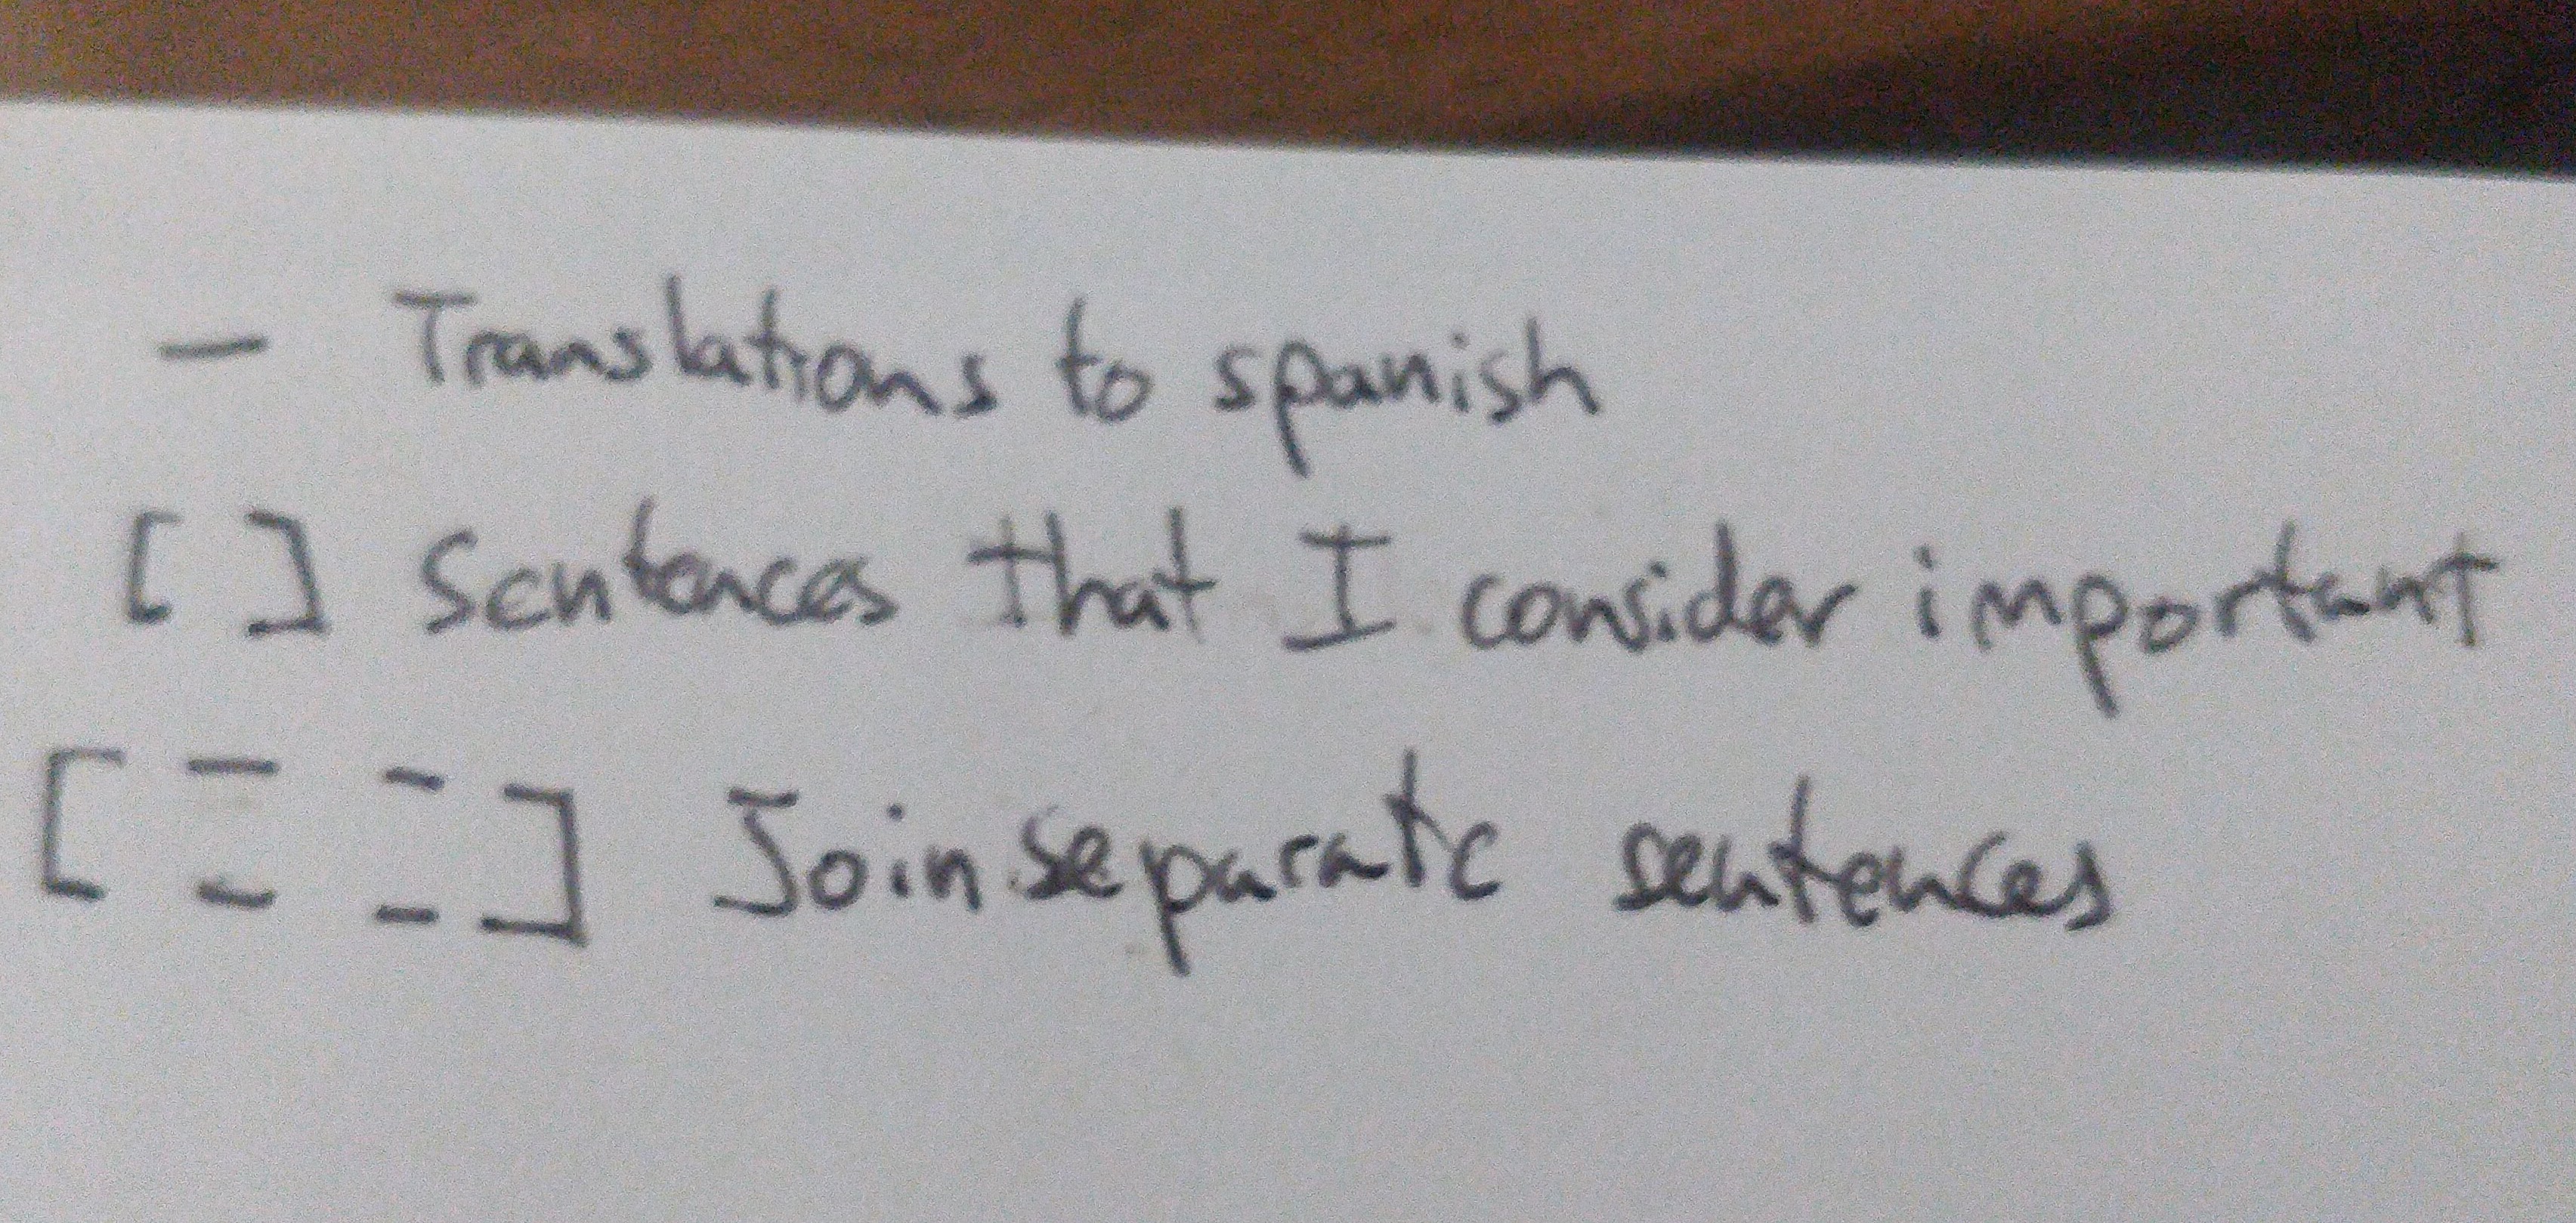 — Translations to spanish
[ ] Sentences that I consider important
[ - - ] Join separate sentences